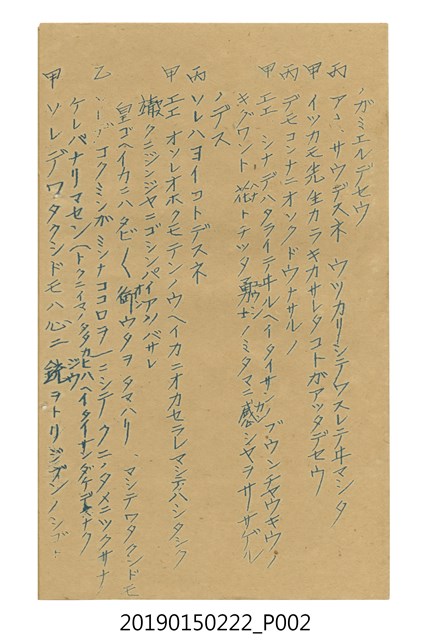 ノガミエルデセウ
丙 アヽ、サウデスネ ウツカリシテワスレテヰマシタ
甲 イツカモ先生カラキカサレタコトガアツタデセウ
丙 デモコンナニオソクドウナサルノ
甲 エエ シナデハタライテヰルヘイタイサンノブウンチヤウキウノ
キグワント 花トチツタ勇士ノミタマニ感シヤヲササゲル
ノデス
丙 ソレハヨイコトデスネ
甲 エエ オソレオホクモテンノウヘイカニオカセラレマシテハシタシク
クニジンジヤニゴシンパイアソバサレ
皇ゴヘイカニハタビ〱御ウタヲタマハリ、マシテワタクシドモ
乙 コクミンガミンナココロヲ一ニシテクニノタメニツクサナ
ケレバナリマセン(トクニイマノタタカヒハヘイタイサンダケデナク
甲 ソレデワタクシドモハ心ニ銃ヲトリ
20190150222_P002